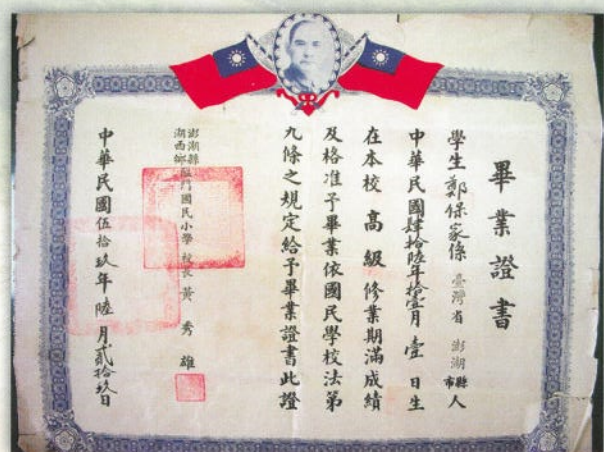 畢業證書
學生鄭保家係臺灣省澎湖縣市人
中華民國肆拾陸年拾壹月壹日生
在本校高級修業期滿成績
及格准予畢業依國民學校法第
九條之規定給予畢業證書此證
澎湖縣
湖西鄉龍門國民小學校長黃秀雄
中華民國伍拾玖年陸月貳拾玖日